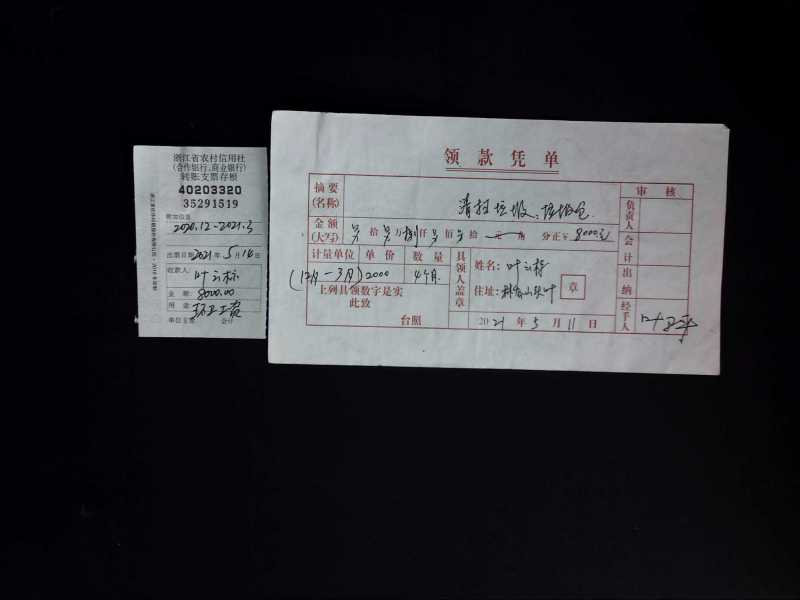 浙江省农村信用社
(合作银行、商业银行)
转账支票存根
40203320
35291519
附加信息
2020.12-2021.3
出票日期 2021年 5月14日
收款人:
叶云标
金额: 8000.00
用途: 环卫工资
单位主管 会计
领款凭单
摘要
(名称)
清扫垃圾、垃圾仓
审核
负责人
会计
出纳
经手人
金额
(大写)
拾 万 捌仟 佰 拾 元 角 分正￥8000元
计量单位 单价 数量
(12月-3月) 2000 4个月
上列具领数字是实
此致
台照
具领人盖章
姓名:叶云标
住址:
章
2021年5月11日